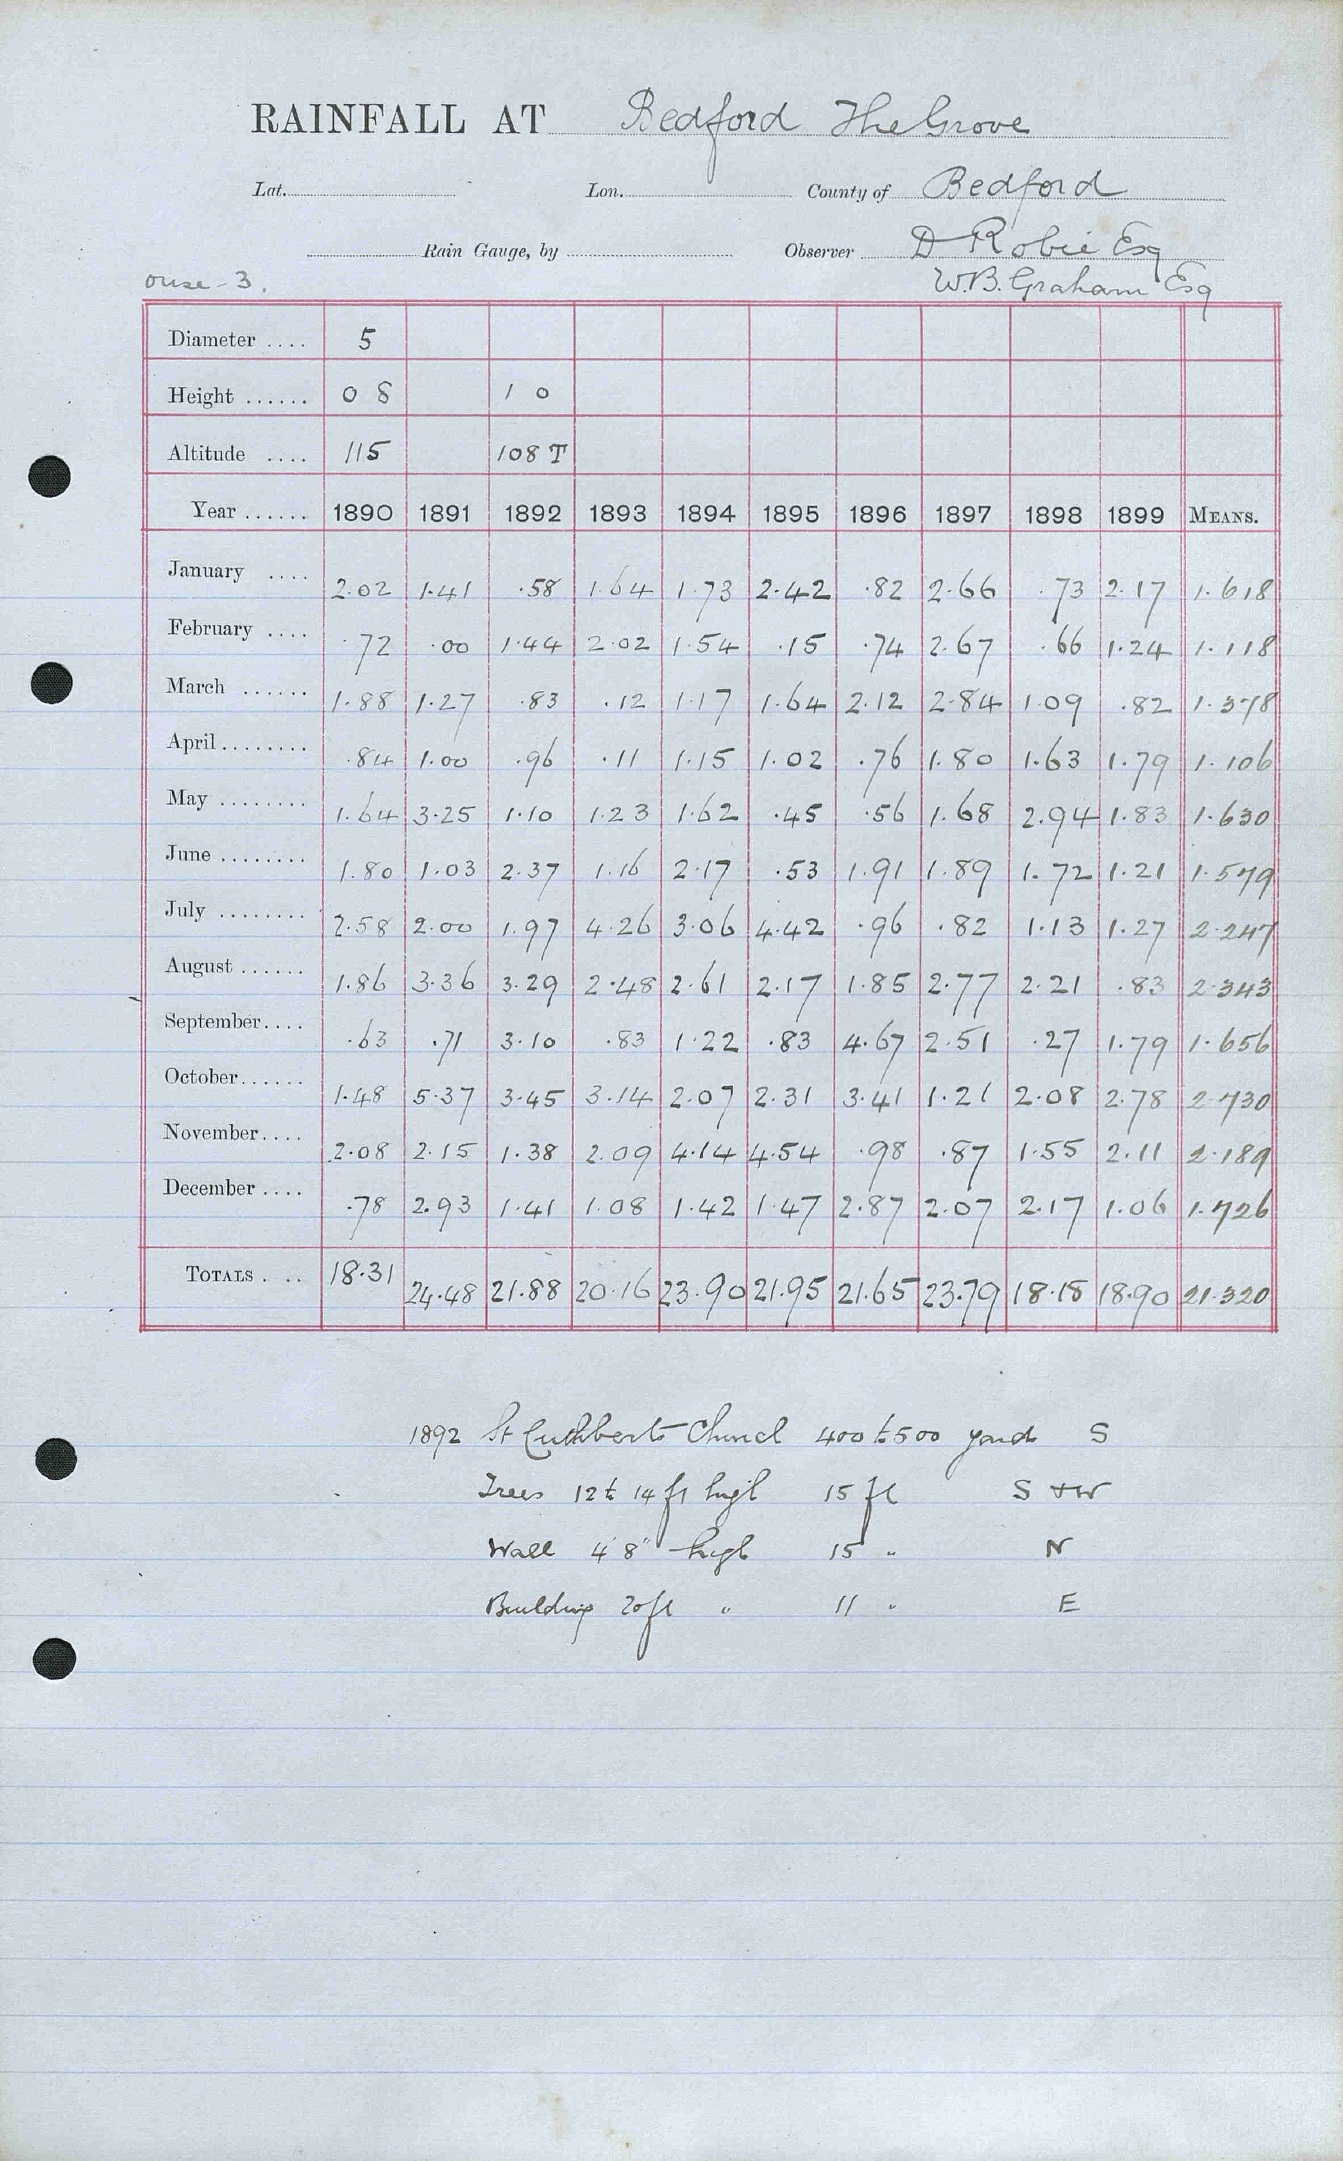 RAINFALL AT Bedford The Grove
Lat. Lon. County of Bedford
Rain Gauge, by Observer D Robie Esq
ouse - 3. W.B. Graham Esq
Diameter .... 5
Height ...... 0 8 1 0
Altitude .... 115 108 T
Year ...... 1890 1891 1892 1893 1894 1895 1896 1897 1898 1899 MEANS.
January .... 2.02 1.41 .58 1.64 1.73 2.42 .82 2.66 .73 2.17 1.618
February .... .72 .00 1.44 2.02 1.54 .15 .74 2.67 .66 1.24 1.118
March ...... 1.88 1.27 .83 .12 1.17 1.64 2.12 2.84 1.09 .82 1.378
April ........ .84 1.00 .96 .11 1.15 1.02 .76 1.80 1.63 1.79 1.106
May ........ 1.64 3.25 1.10 1.23 1.62 .45 .56 1.68 2.94 1.83 1.630
June ........ 1.80 1.03 2.37 1.16 2.17 .53 1.91 1.89 1.72 1.21 1.579
July ........ 2.58 2.00 1.97 4.26 3.06 4.42 .96 .82 1.13 1.27 2.247
August ...... 1.86 3.36 3.29 2.48 2.61 2.17 1.85 2.77 2.21 .83 2.343
September .... .63 .71 3.10 .83 1.22 .83 4.67 2.51 .27 1.79 1.656
October ...... 1.48 5.37 3.45 3.14 2.07 2.31 3.41 1.21 2.08 2.78 2.730
November .... 2.08 2.15 1.38 2.09 4.14 4.54 .98 .87 1.55 2.11 2.189
December .... .78 2.93 1.41 1.08 1.42 1.47 2.87 2.07 2.17 1.06 1.726
TOTALS . .. 18.31 24.48 21.88 20.16 23.90 21.95 21.65 23.79 18.18 18.90 21.320
1892 St Cuthberts Church 400 to 500 yards S
Trees 12 to 14 ft high 15 ft S + W
Wall 4' 8" high 15 " N
Building 20 ft " 11 " E